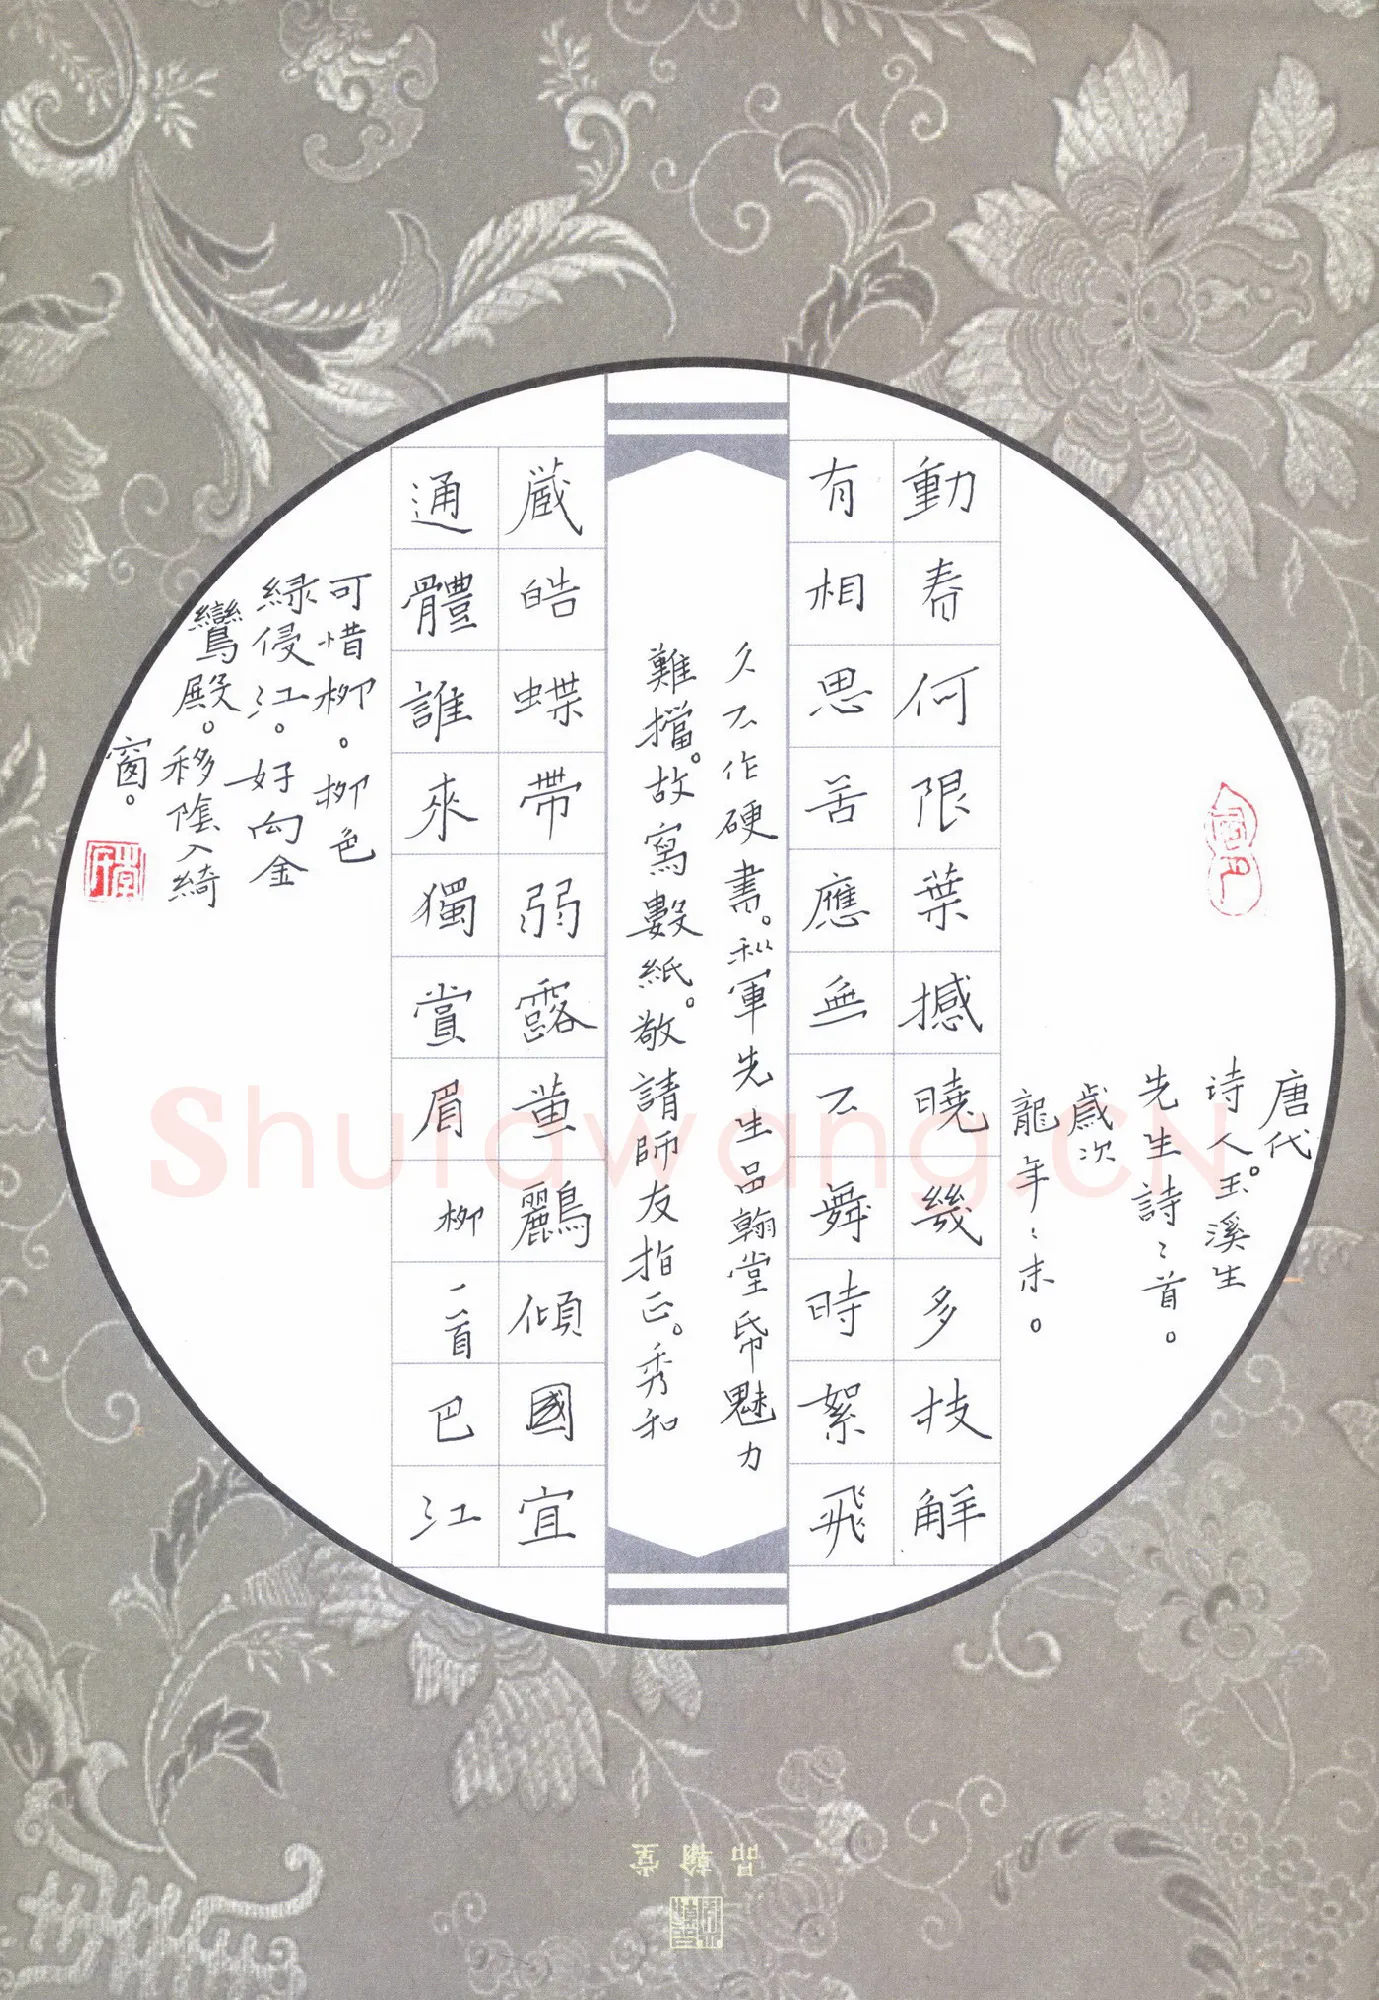 唐代
诗人。玉溪生
先生詩〻首。
歲次
龍年〻末。
動春何限葉撼曉幾多技解
有相思苦應無不舞時絮飛
久不作硬書。私軍先生品翰堂帋魅力
難擋。故寫數紙。敬請師友指正。秀和
蔵皓蝶帶弱露䔲鸝傾國宜
通體誰來獨賞眉柳一首巴江
可惜柳。柳色
緑侵江。好向金
鸞殿。移陰入綺
窗。
品翰堂
Shufawang.CN